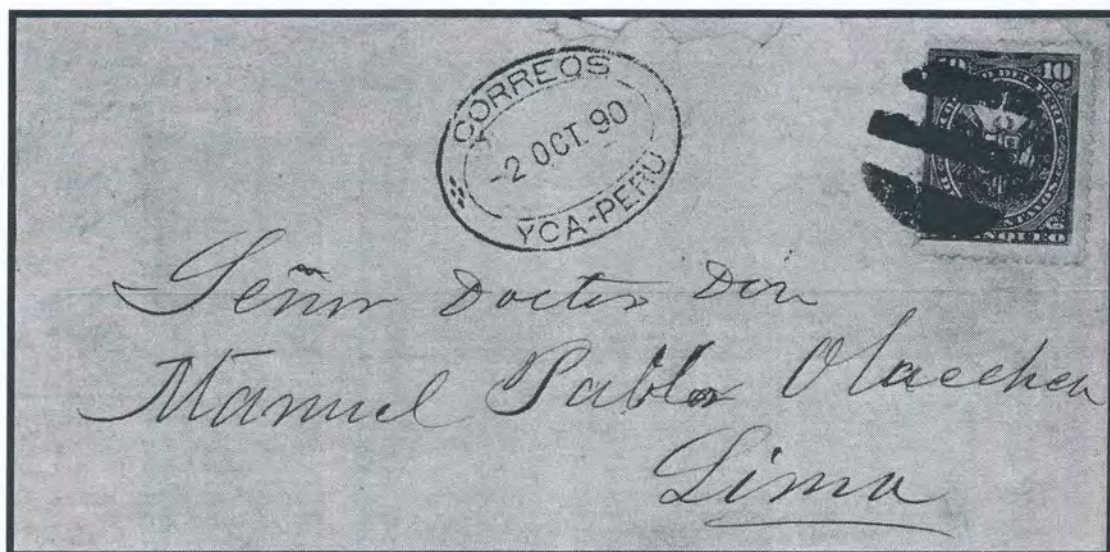 CORREOS
-2 OCT. 90
YCA-PERU
10 10
Señor Doctor Don
Manuel Pablo Olaechea
Lima